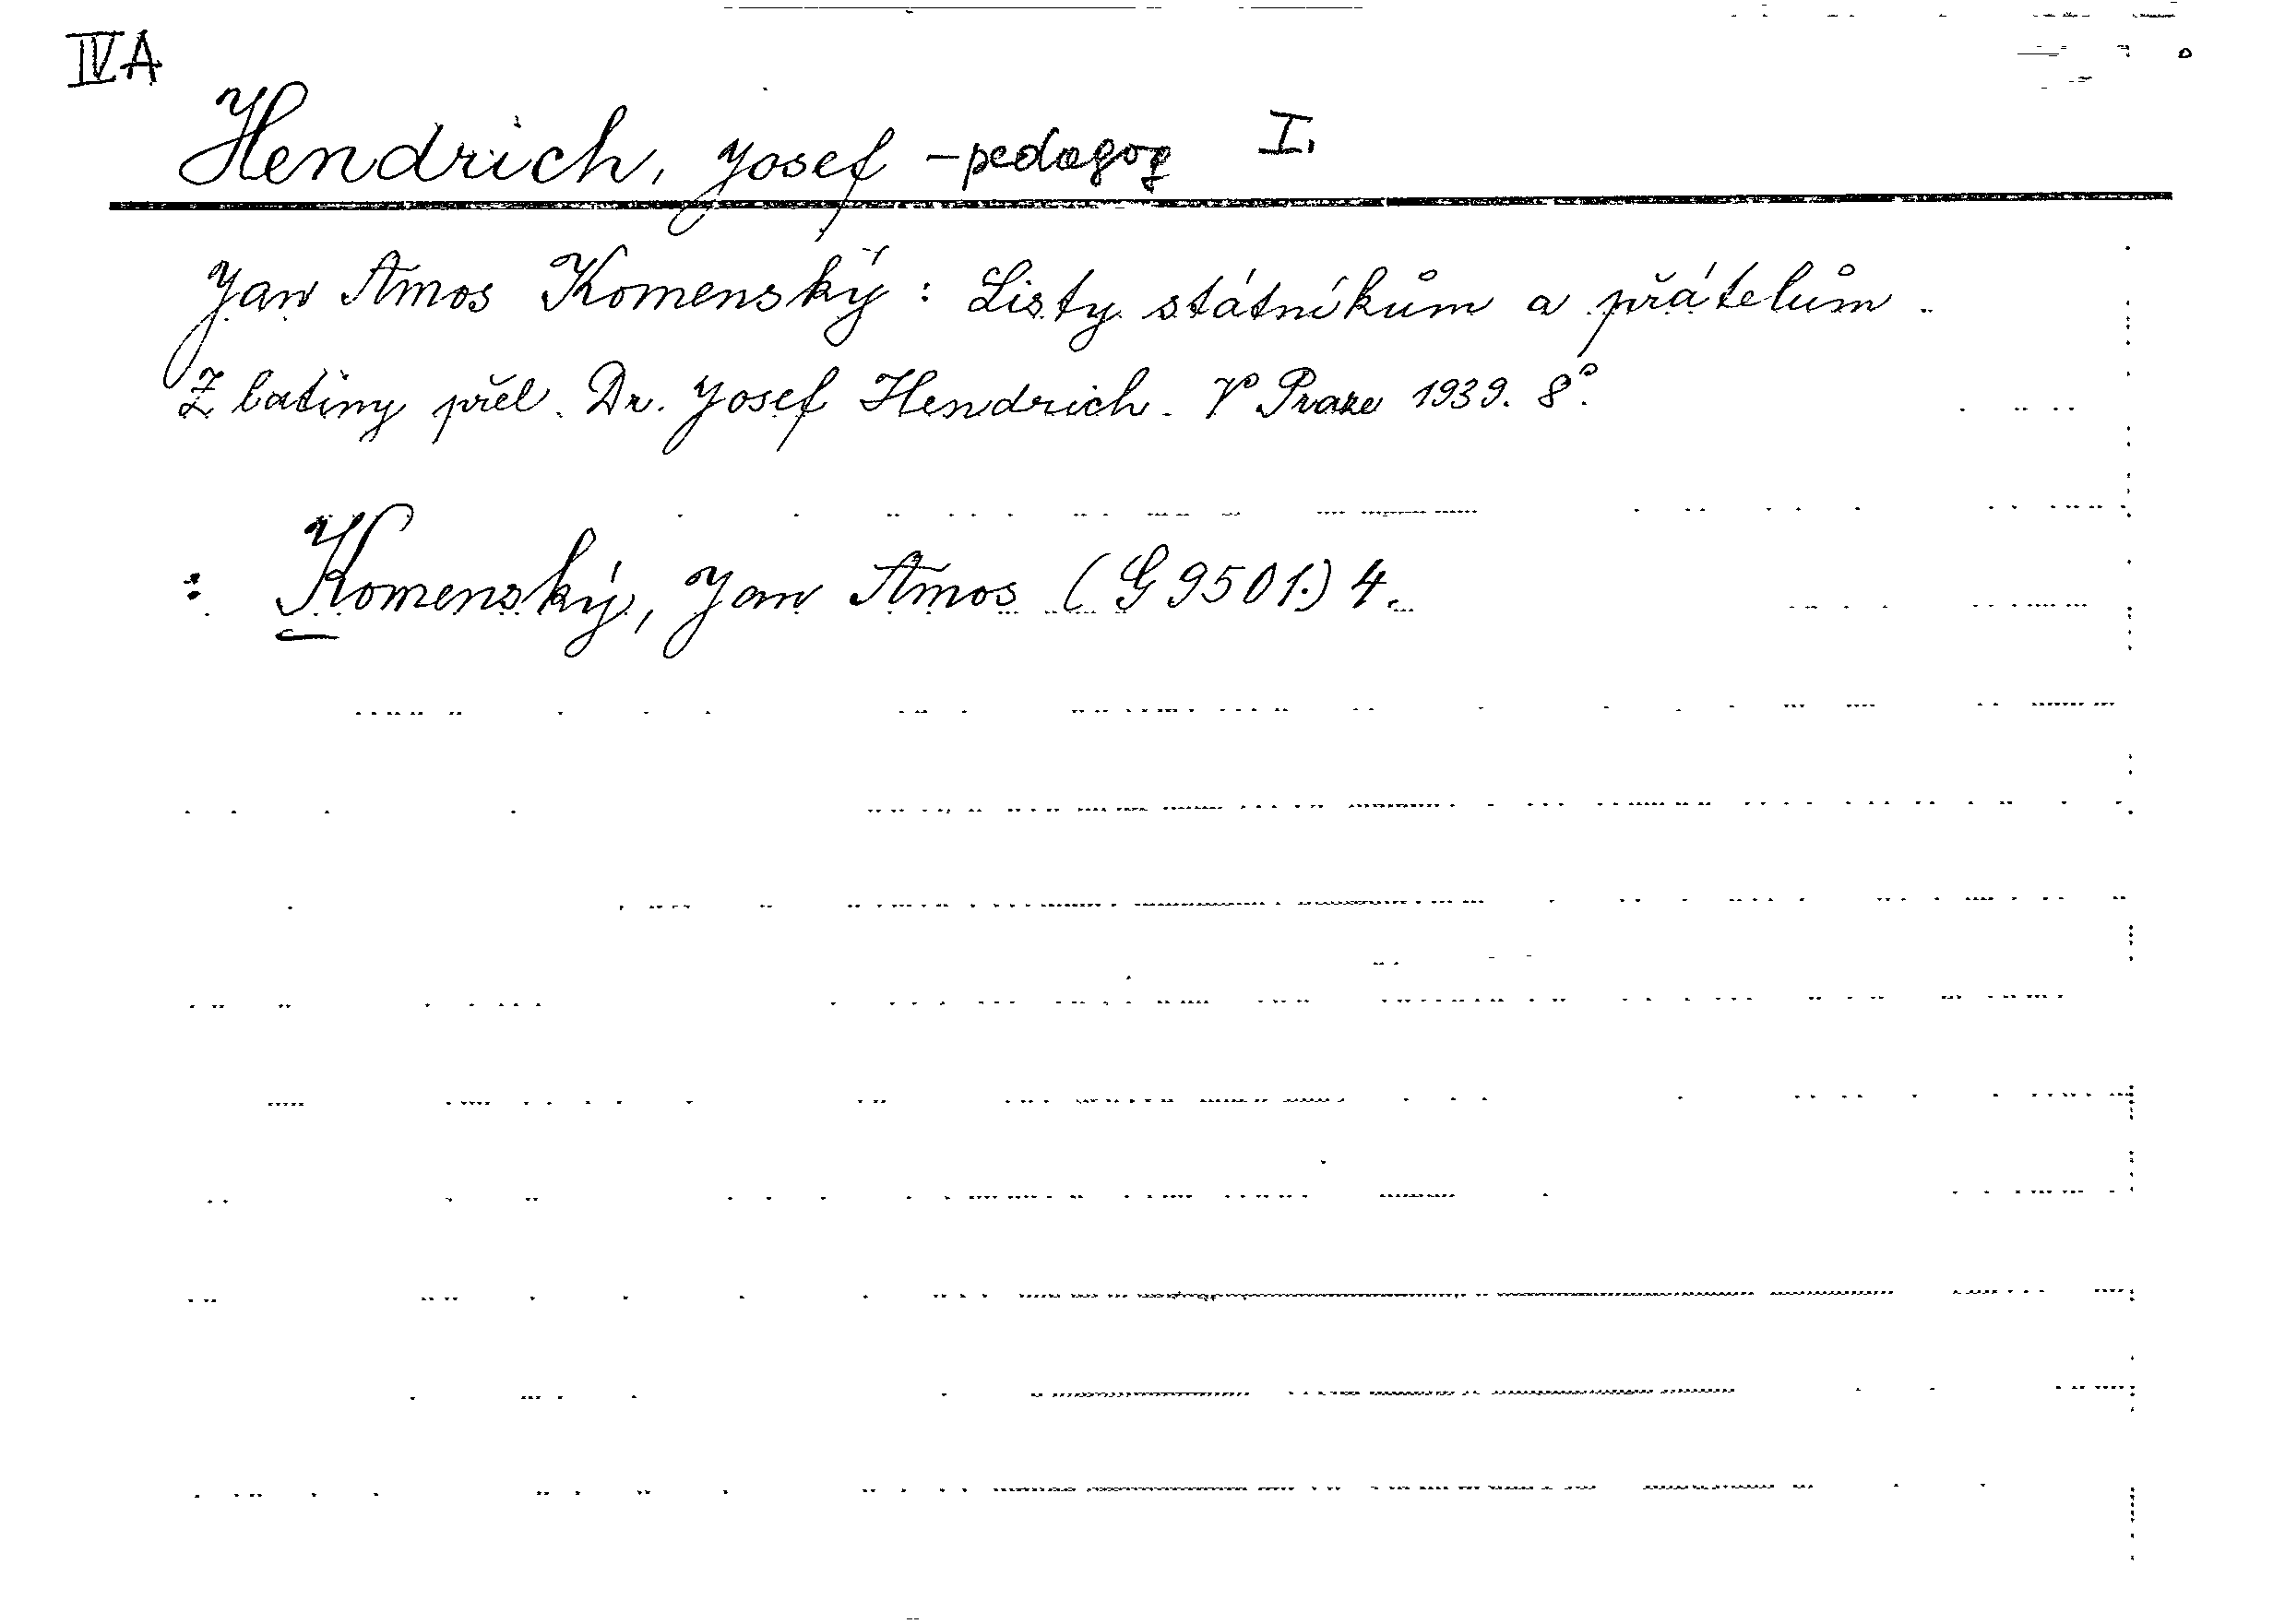 IVA
Hendrich, Josef - pedagog I.
Jan Amos Komenský: Listy státníkům a přátelům.
Z latiny přel. Dr. Josef Hendrich. V Praze 1939. 8°.
: Komenský, Jan Amos (G 9501.) 4.